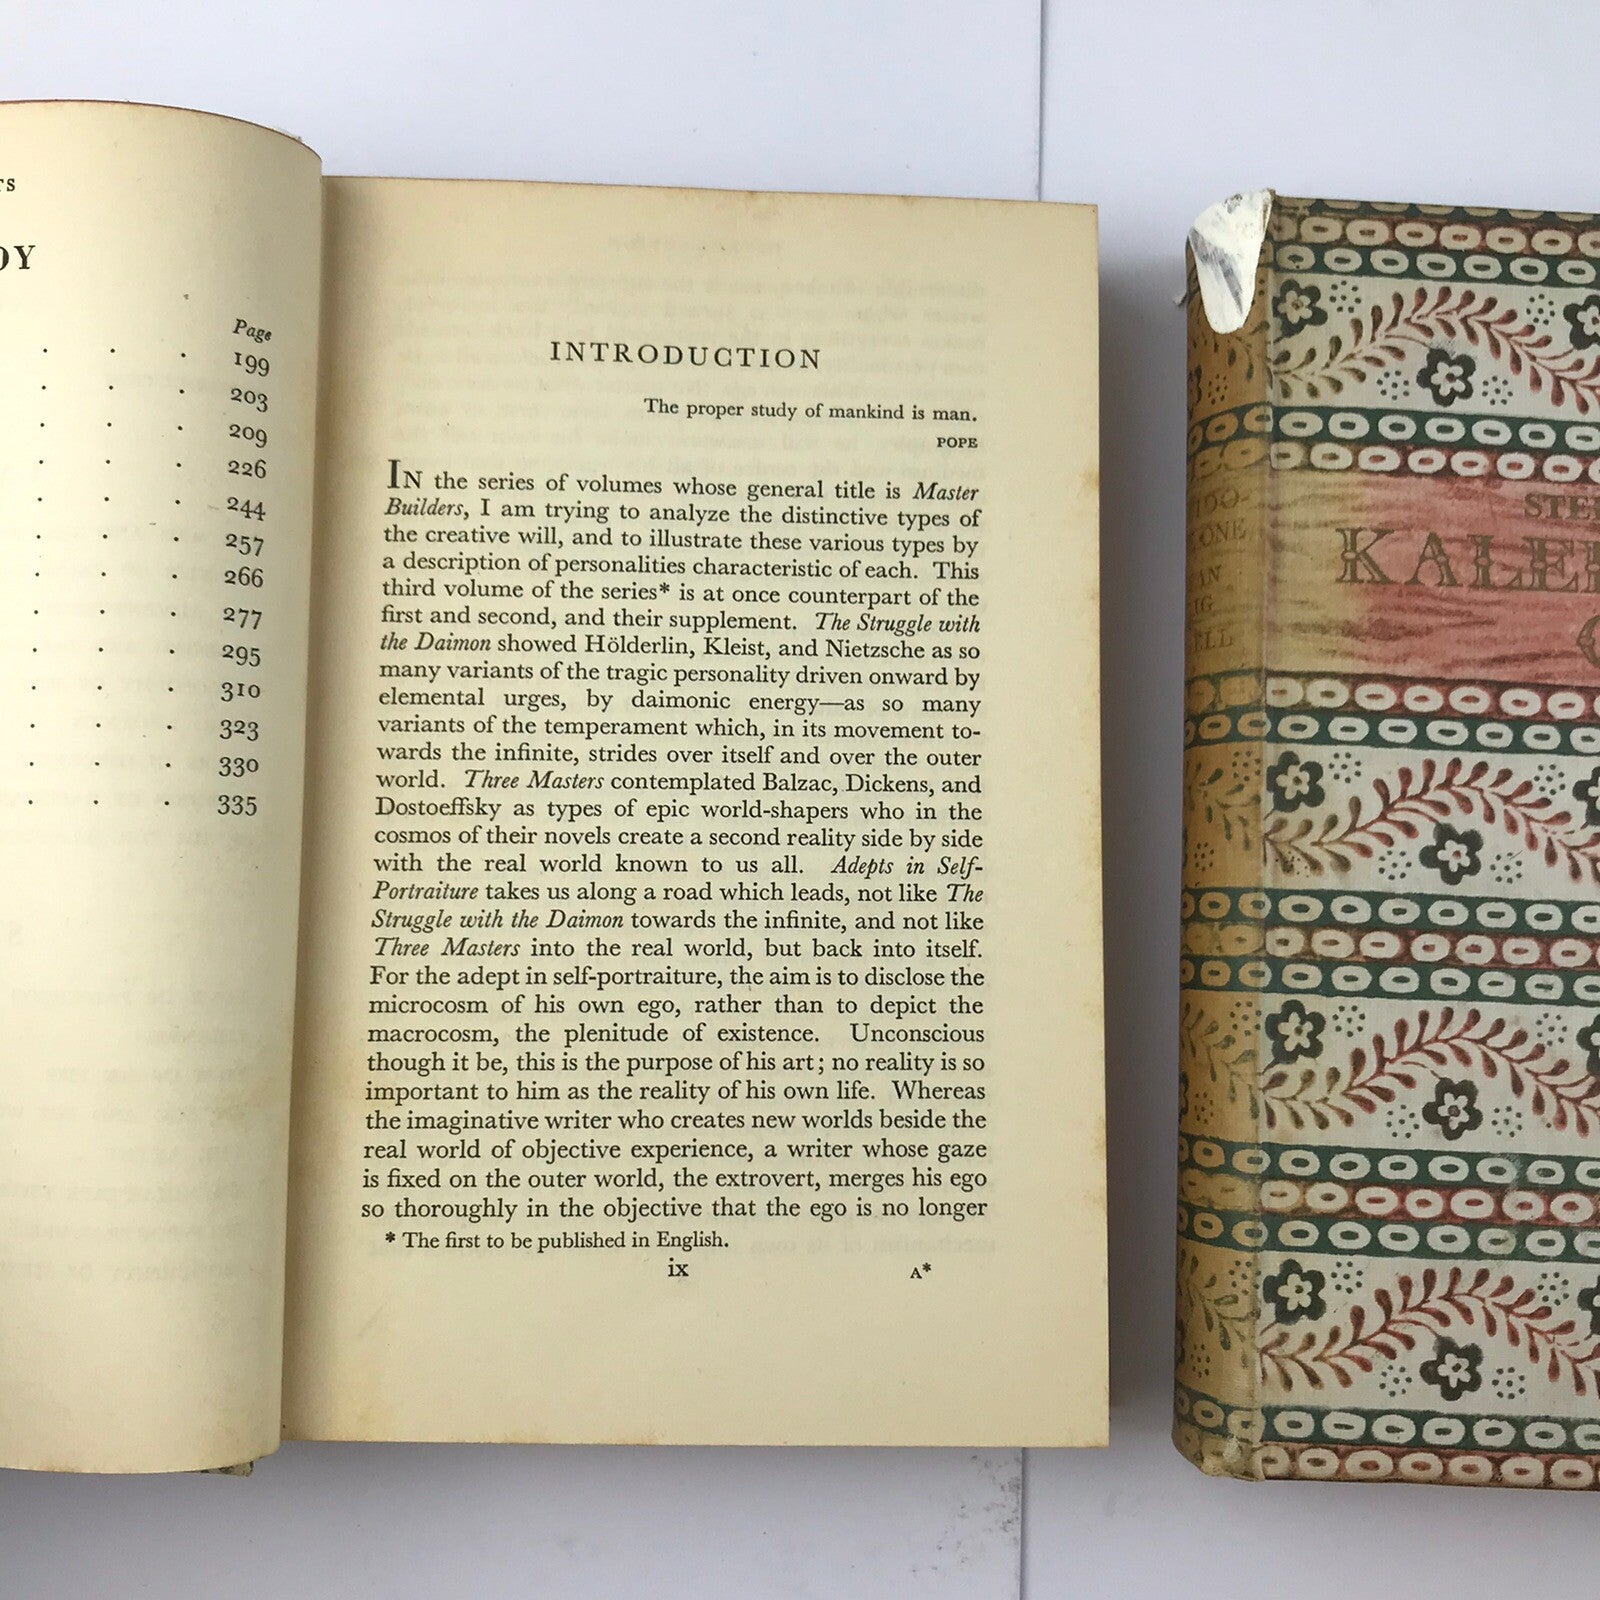 Page
199
203
209
226
244
257
266
277
295
310
323
330
335
INTRODUCTION
The proper study of mankind is man.
POPE
IN the series of volumes whose general title is Master
Builders, I am trying to analyze the distinctive types of
the creative will, and to illustrate these various types by
a description of personalities characteristic of each. This
third volume of the series* is at once counterpart of the
first and second, and their supplement. The Struggle with
the Daimon showed Hölderlin, Kleist, and Nietzsche as so
many variants of the tragic personality driven onward by
elemental urges, by daimonic energy—as so many
variants of the temperament which, in its movement to-
wards the infinite, strides over itself and over the outer
world. Three Masters contemplated Balzac, Dickens, and
Dostoeffsky as types of epic world-shapers who in the
cosmos of their novels create a second reality side by side
with the real world known to us all. Adepts in Self-
Portraiture takes us along a road which leads, not like The
Struggle with the Daimon towards the infinite, and not like
Three Masters into the real world, but back into itself.
For the adept in self-portraiture, the aim is to disclose the
microcosm of his own ego, rather than to depict the
macrocosm, the plenitude of existence. Unconscious
though it be, this is the purpose of his art; no reality is so
important to him as the reality of his own life. Whereas
the imaginative writer who creates new worlds beside the
real world of objective experience, a writer whose gaze
is fixed on the outer world, the extrovert, merges his ego
so thoroughly in the objective that the ego is no longer
* The first to be published in English.
ix A*
STE
KALE